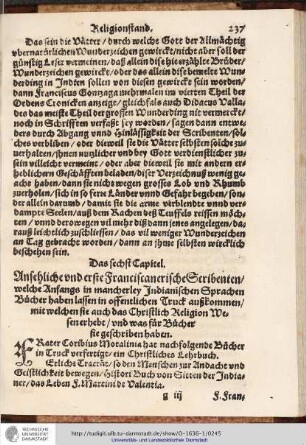 Religionstand. 237
Das sein die Vätter / durch welche Gott der Allmächtig
vbernatürlichen Wunderzeichen gewircket / nicht aber soll der
günstig Leser vermeinen / daß allein diese hie erzählte Brüder /
Wunderzeichen gewircke / oder das allein dise bemelte Wun-
derding in Indien sollen von diesen gewircke sein worden /
dann Franciscus Gonzaga mehrmalen im vierten Theil der
Ordens Cronicken anzeigt / gleichfals auch Didacus Valla-
des das meiste Theil der grossen Wunderding nit vermercke /
noch in Schrifften verfaßt sey worden / sagen dann entwe-
ders durch Abgang vnnd Hinlässigkeit der Scribenten / sol-
ches verbliben / oder dieweil sie die Vätter selbsten solche zu-
verhalten / jhnen nunlicher vnd bey Gott verdienstlicher zu-
sein villeicht vermeint / oder aber dieweil sie mit andern er-
heblichern Geschäfften beladen / diser Verzeichnuß wenig ge-
acht haben / dann sie nicht wegen grosses Lob vnd Rhumb
zuerholen / sich in so ferre Länder vnnd Gefahr begeben / son-
der allein darumb / damit sie die arme verblendte vnnd ver-
dampte Seelen / auß dem Rachen deß Teuffels reissen möch-
ten / vnnd derowegen vil mehr diß dann jenes angelegen / da-
rauß leichtlich zuschliessen / das vil weniger Wunderzeichen
an Tag gebracht worden / dann an jhme selbsten würcklich
beschehen sein.
Das sechst Capitel.
Ansehliche vnd erste Franciscanerische Scribenten /
welche Anfangs in mancherley Indianischen Sprachen
Bücher haben lassen in offentlichen Truck außkommen /
mit welchen sie auch das Christlich Religion We-
sen erhebt / vnd was für Bücher
sie geschriben haben.
FRater Toribius Motalinia hat nachfolgende Bücher
in Truck verfertigt / ein Christliches Lehrbuch.
Etliche Tractät / so den Menschen zur Andacht vnd
Geistlichkeit bewegen / Histori Buch von Sitten der India-
ner / das Leben F. Martini de Valentia.
g iij F. Fran-
http://tudigit.ulb.tu-darmstadt.de/show/G-1636-1/0245
Universitäts- und Landesbibliothek Darmstadt